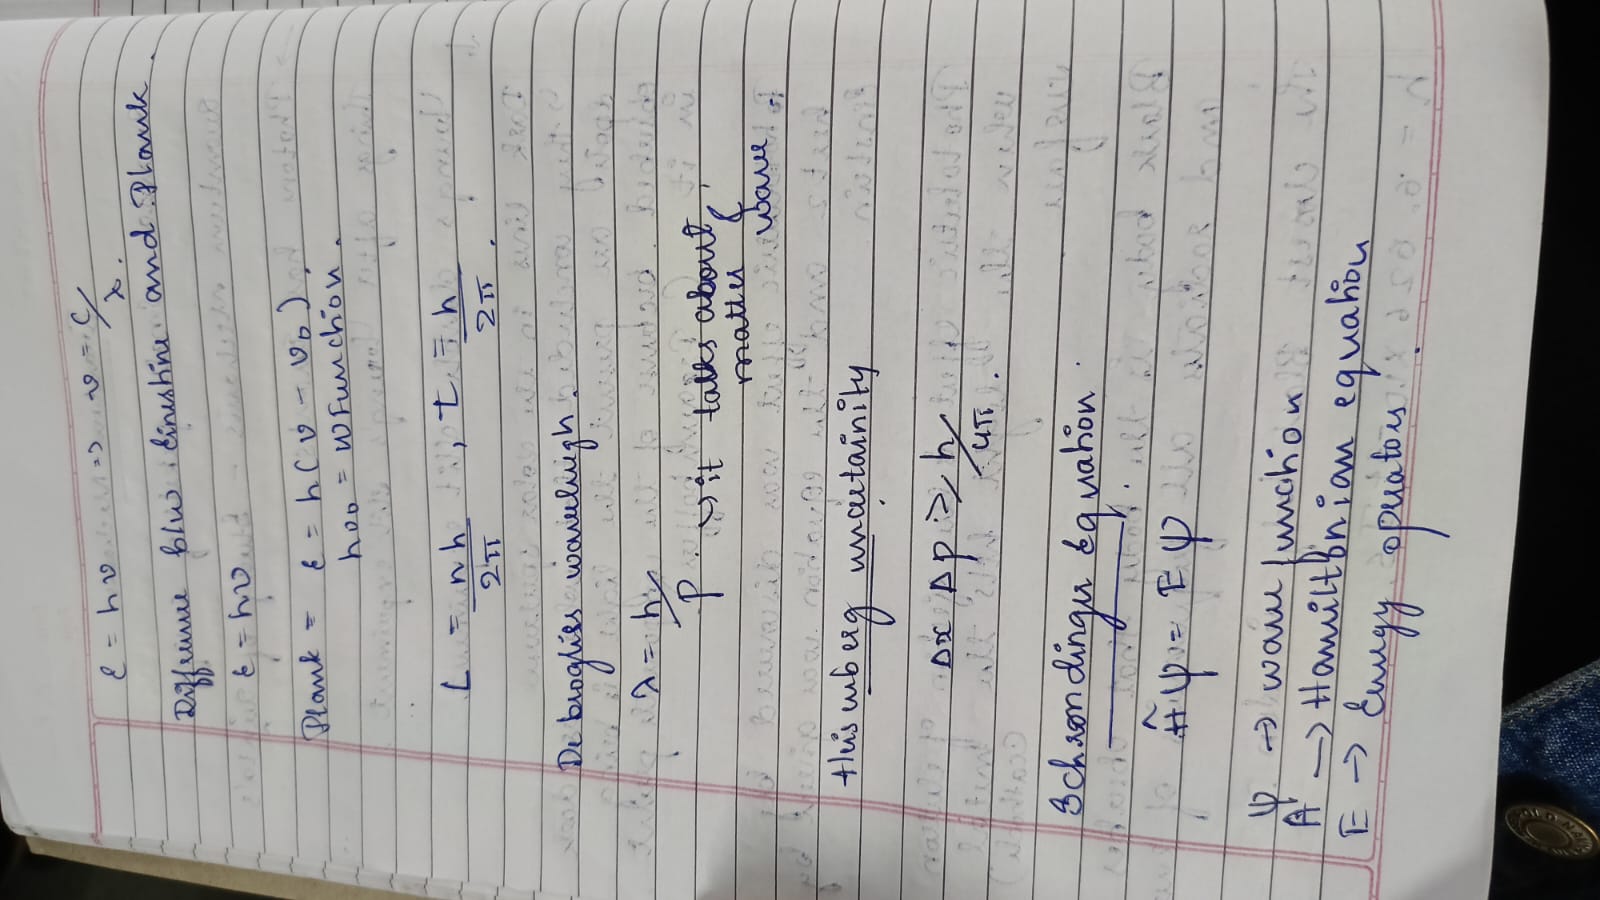 ε = hν => ν = c/λ.
Difference b/w Einstine and Plank.
ε = hν
Plank = ε = h(ν - ν₀)
hν₀ = w Function.
L = nh/2π, t = h/2π.
De broglies wavelingh.
λ = h/P → it talks about
matter wave
Heisenberg uncertainity
Δx Δp ≥ h/4π.
Schrondinger Equation.
Ĥψ = Eψ
ψ → wave function
Ĥ → Hamiltonian equation
E → Energy operator